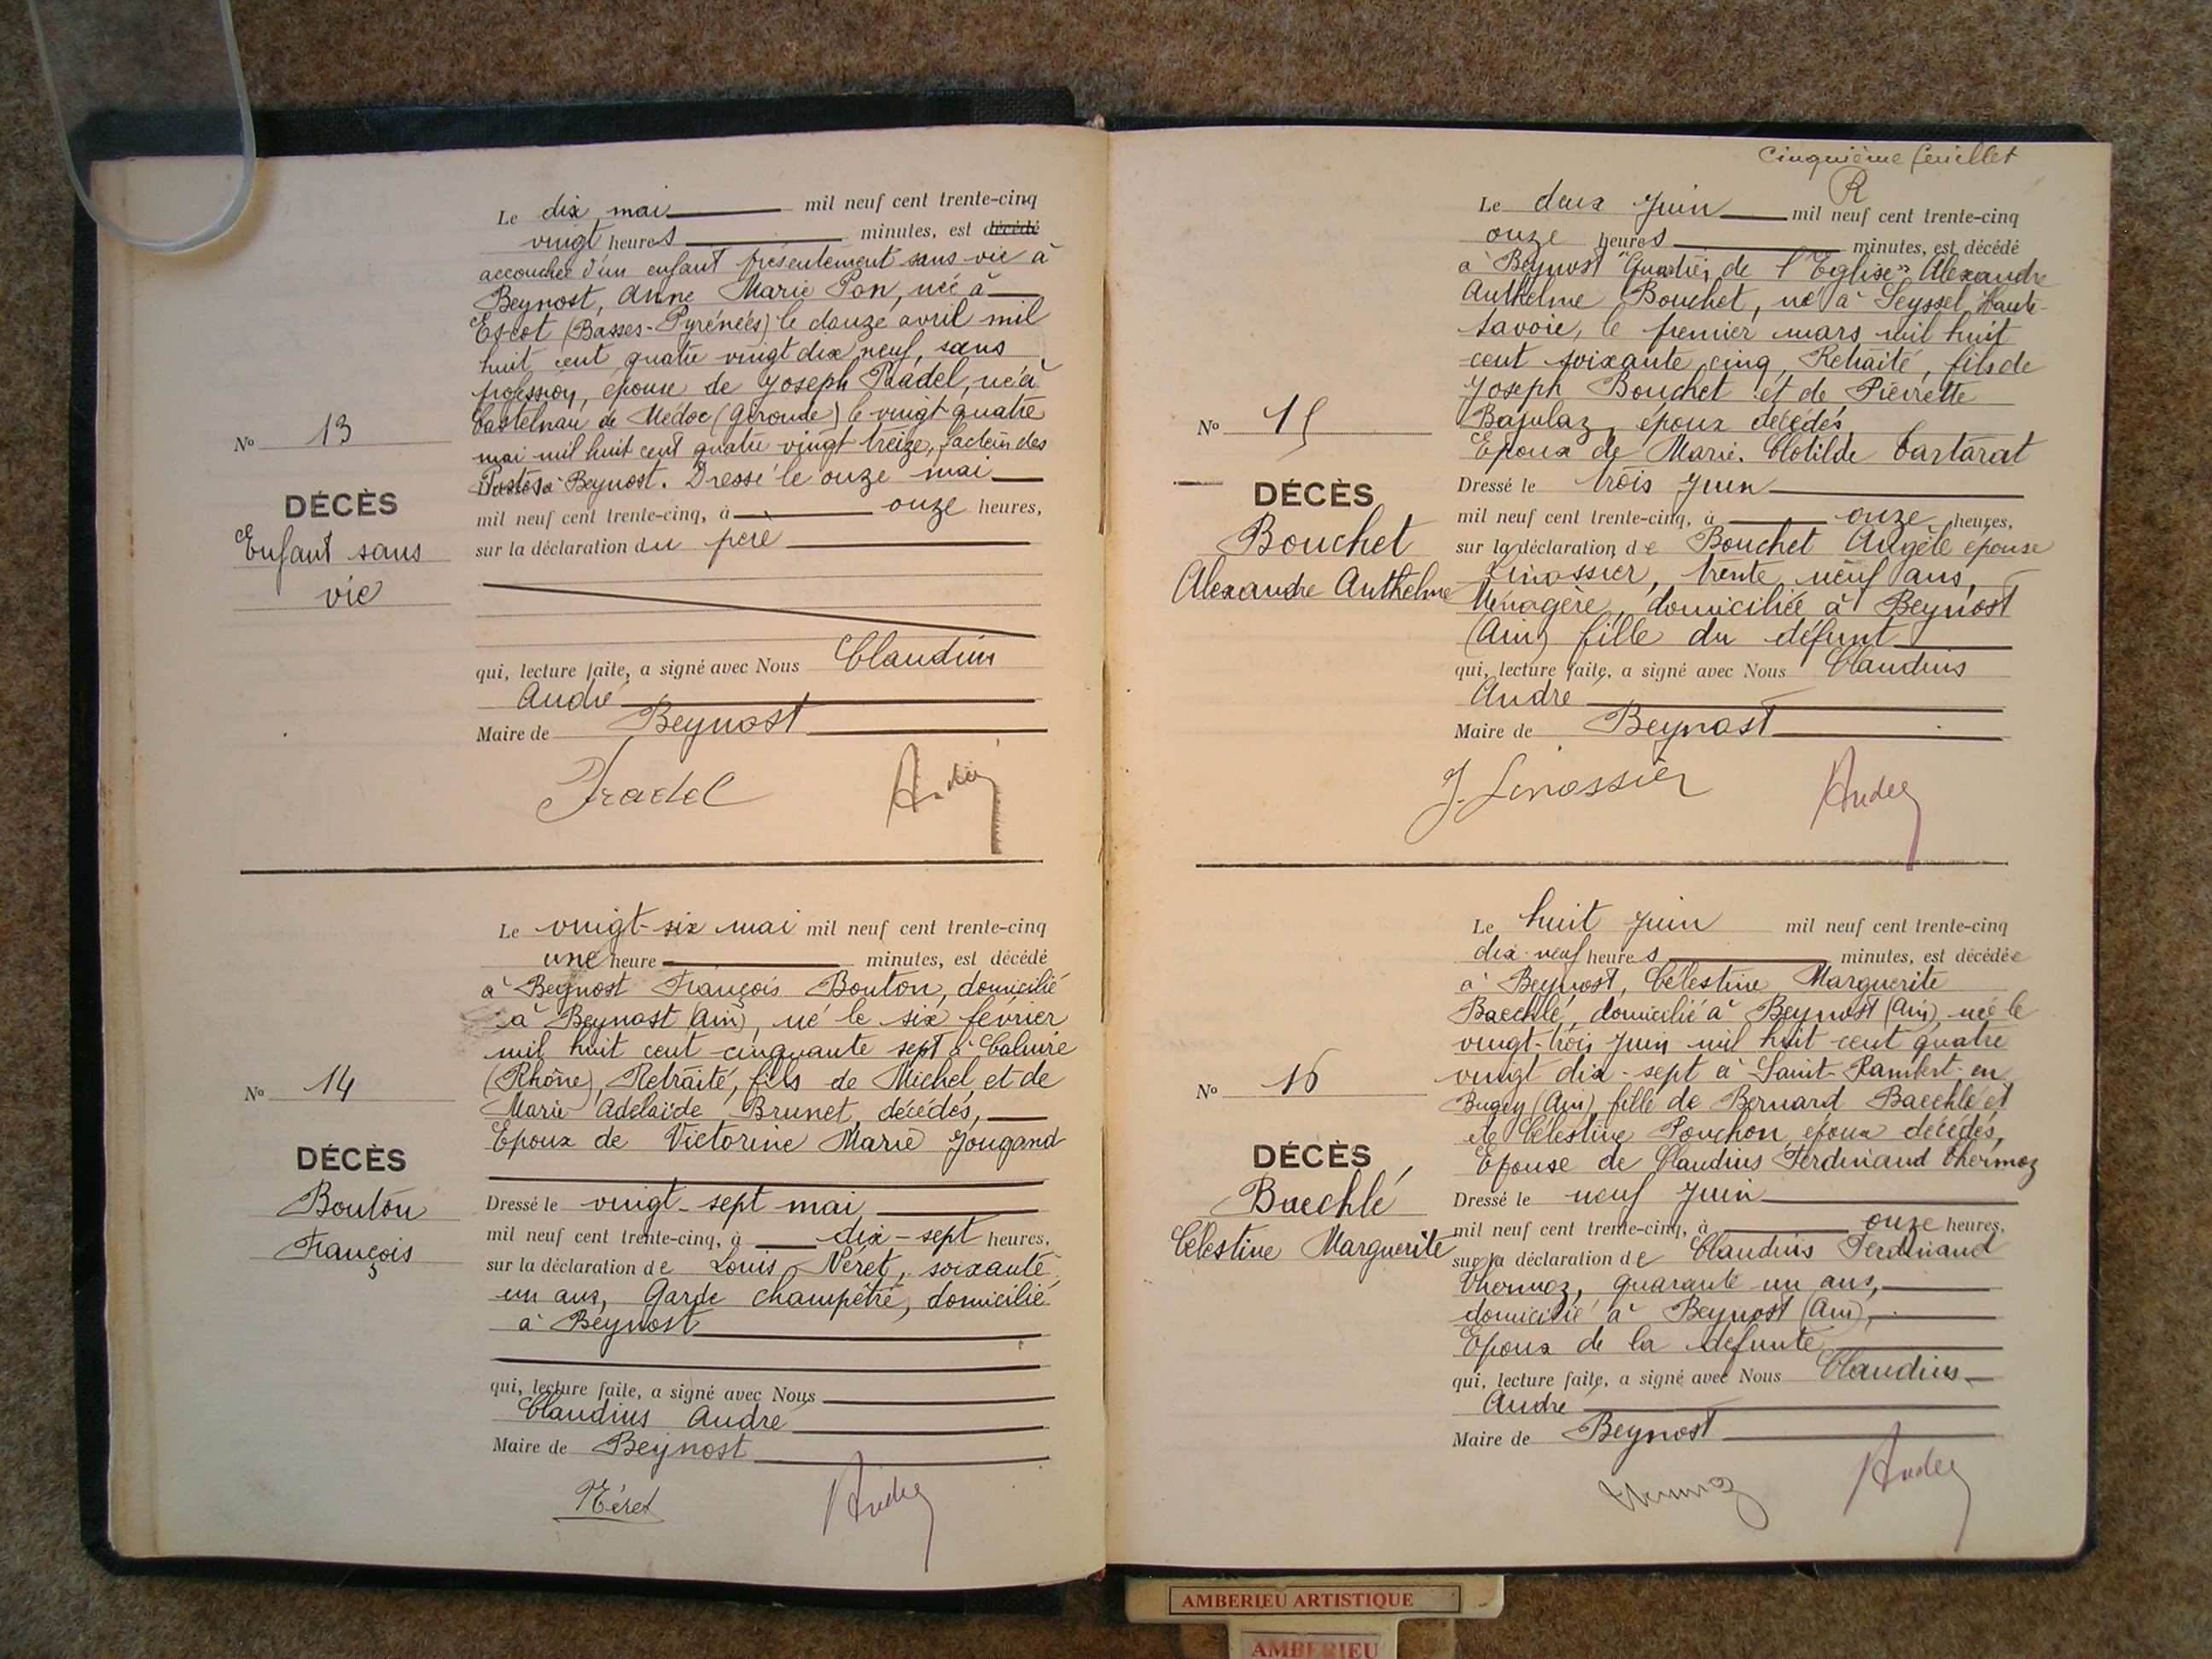 Le dix mai mil neuf cent trente-cinq
vingt heures minutes, est décédé
accouchée d'un enfant présentement sans vie à
Beynost, Anne Marie Pon, née à
Escot (Basses-Pyrénées) le douze avril mil
huit cent quatre vingt dix neuf, sans
profession, épouse de Joseph Pradel, né à
Castelnau de Médoc (Gironde) le vingt quatre
mai mil huit cent quatre vingt treize, facteur des
Postes à Beynost. Dressé le onze mai
mil neuf cent trente-cinq, à onze heures,
sur la déclaration du père
qui, lecture faite, a signé avec Nous Claudius
André
Maire de Beynost
Pradel André
No 13
DÉCÈS
Enfant sans
vie
Le vingt-six mai mil neuf cent trente-cinq
une heure minutes, est décédé
à Beynost François Bouton, domicilié
à Beynost (Ain), né le six février
mil huit cent cinquante sept à Caluire
(Rhône), Retraité, fils de Michel et de
Marie Adelaïde Brunet, décédés,
Epoux de Victorine Marie Jougand
Dressé le vingt-sept mai
mil neuf cent trente-cinq, à dix-sept heures,
sur la déclaration de Louis Néret, soixante
un ans, Garde champêtre, domicilié
à Beynost
qui, lecture faite, a signé avec Nous
Claudius André
Maire de Beynost
Néret André
No 14
DÉCÈS
Bouton
François
Cinquième feuillet
R
Le deux Juin mil neuf cent trente-cinq
onze heures minutes, est décédé
à Beynost "Quartier de l'Eglise" Alexandre
Anthelme Bouchet, né à Seyssel Haute-
Savoie, le premier mars mil huit
cent soixante cinq, Retraité, fils de
Joseph Bouchet et de Pierrette
Bajulaz, époux décédés,
Epoux de Marie. Clotilde Cartarat
Dressé le trois Juin
mil neuf cent trente-cinq, à onze heures,
sur la déclaration de Bouchet Angèle épouse
Linossier, trente neuf ans,
Ménagère, domiciliée à Beynost
(Ain) fille du défunt
qui, lecture faite, a signé avec Nous Claudius
André
Maire de Beynost
J. Linossier André
No 15
DÉCÈS
Bouchet
Alexandre Anthelme
Le huit Juin mil neuf cent trente-cinq
dix-neuf heures minutes, est décédée
à Beynost, Célestine Marguerite
Baechlé, domicilié à Beynost (Ain), née le
vingt-trois Juin mil huit cent quatre
vingt dix-sept à Saint-Rambert-en
Bugey (Ain) fille de Bernard Baechlé et
de Célestine Ponchon époux décédés,
Epouse de Claudius Ferdinand Thermoz
Dressé le neuf Juin
mil neuf cent trente-cinq, à onze heures,
sur la déclaration de Claudius Ferdinand
Thermoz, quarante un ans,
domicilié à Beynost (Ain),
Epoux de la défunte
qui, lecture faite, a signé avec Nous Claudius
André
Maire de Beynost
Thermoz André
No 16
DÉCÈS
Baechlé
Célestine Marguerite
AMBERIEU ARTISTIQUE
AMBERIEU